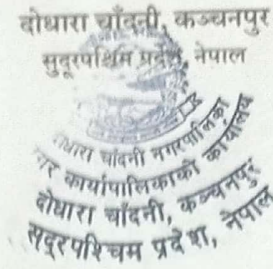 दोधारा चाँदनी, कञ्चनपुर
सुदूरपश्चिम प्रदेश, नेपाल
दोधारा चाँदनी नगरपालिका
नगर कार्यपालिकाको कार्यालय
दोधारा चाँदनी, कञ्चनपुर
सुदूरपश्चिम प्रदेश, नेपाल